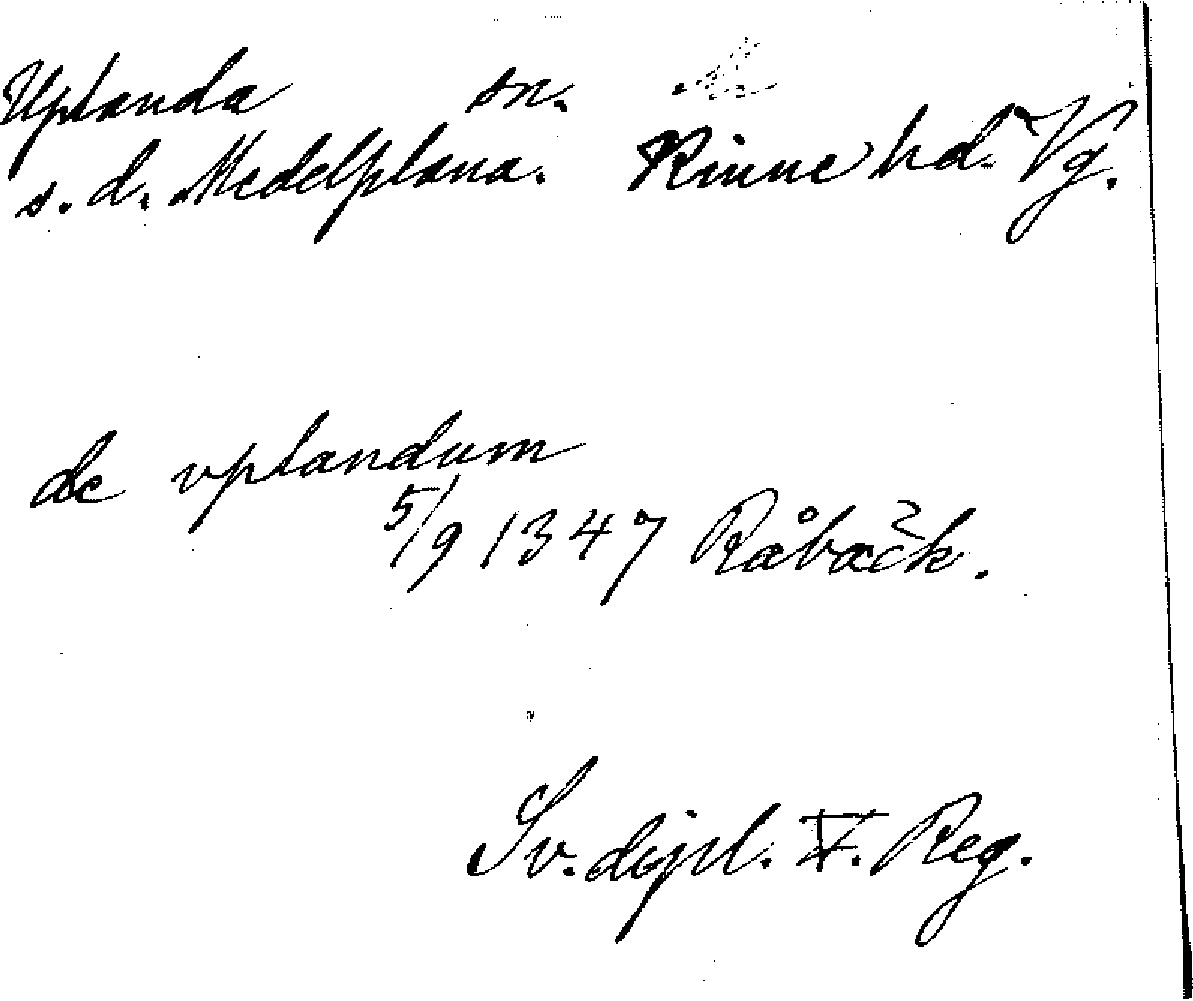 Uplanda sn.
s. d. Medelplana. Kinne hd. Vg.
de vplandum
5/9 1347 Råbäck.
Sv. dipl. V. Reg.